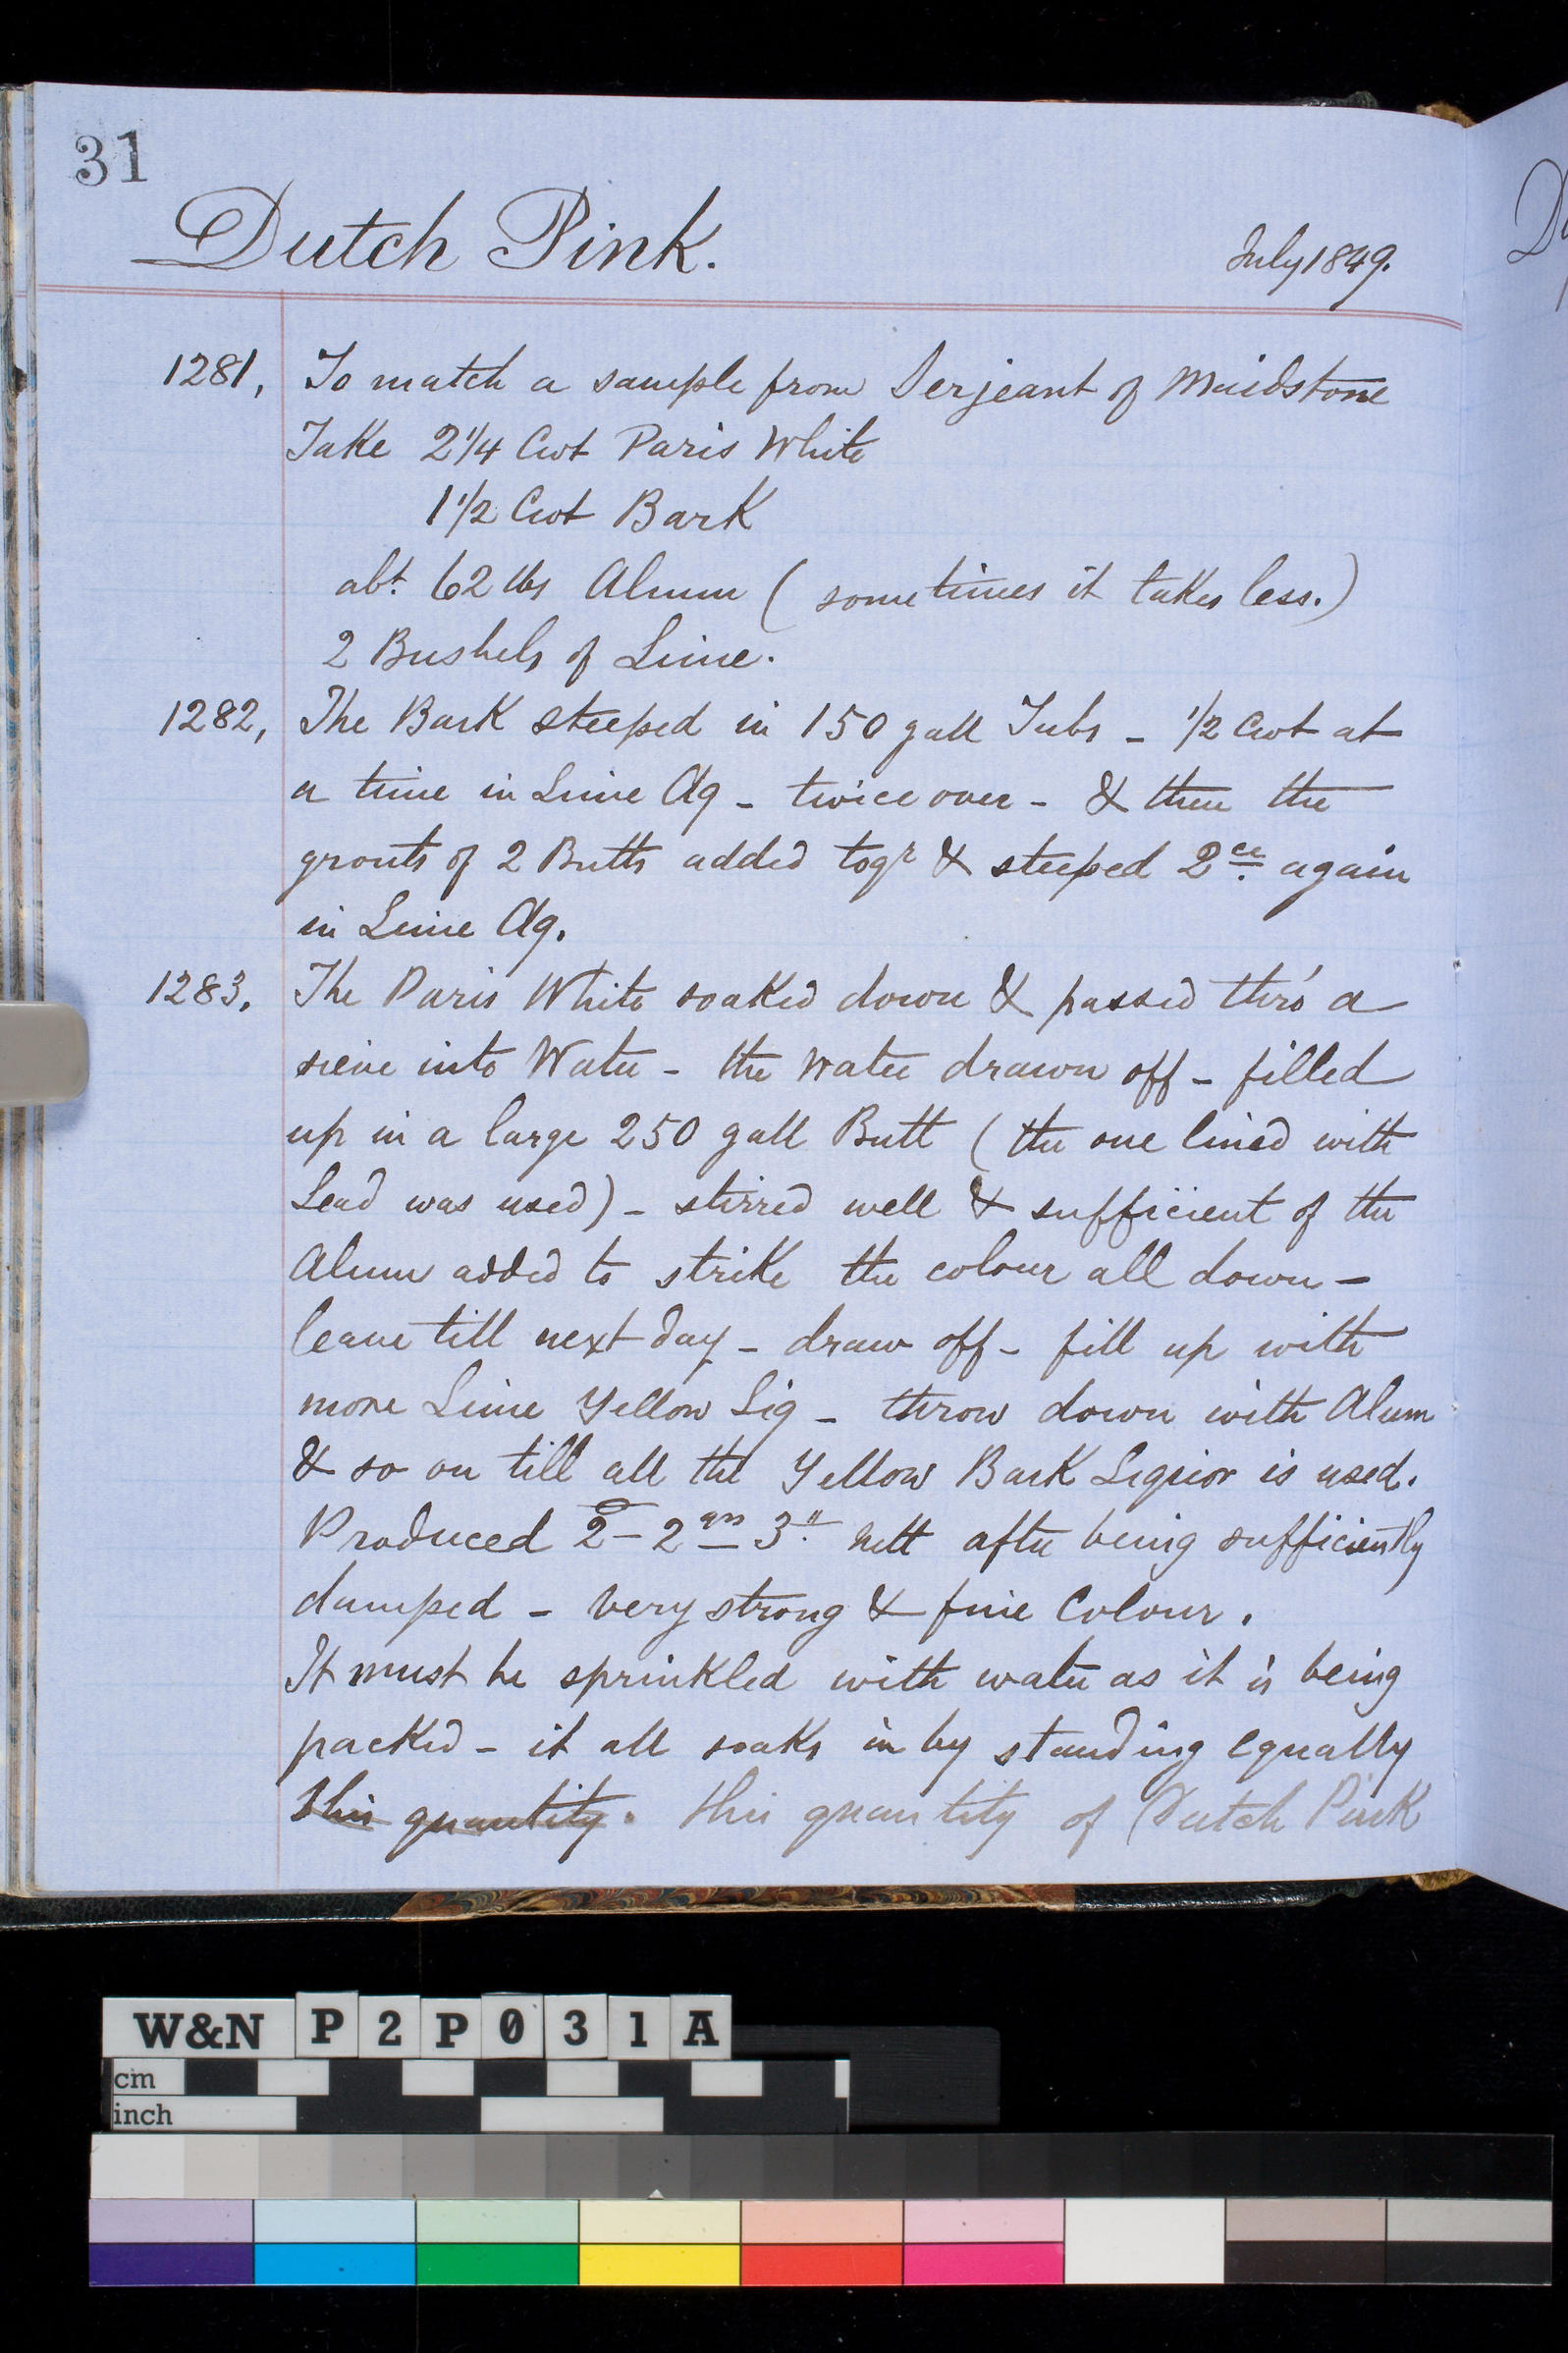 31
Dutch Pink.
July 1849.
1281, To match a sample from Serjeant of Maidstone
Take 2 1/4 Cwt Paris White
1 1/2 Cwt Bark
abt. 62 lbs Alum (sometimes it takes less.)
2 Bushels of Lime.
1282, The Bark steeped in 150 gall Tubs - 1/2 Cwt at
a time in Lime Aq - twice over - & then the
grouts of 2 Butts added togr & steeped 2ce again
in Lime Aq.
1283. The Paris White soaked down & passed thro' a
sieve into Water - the water drawn off - filled
up in a large 250 gall Butt (the one lined with
Lead was used) - stirred well & sufficient of the
Alum added to strike the colour all down -
leave till next day - draw off - fill up with
more Lime Yellow Liq - throw down with Alum
& so on till all the Yellow Bark Liquor is used.
Produced 2 - 2 qrs 3 nett after being sufficiently
damped - very strong & fine Colour.
It must be sprinkled with water as it is being
packed - it all soaks in by standing equally
This quantity. this quantity of Dutch Pink
W&N P2P031A
cm
inch